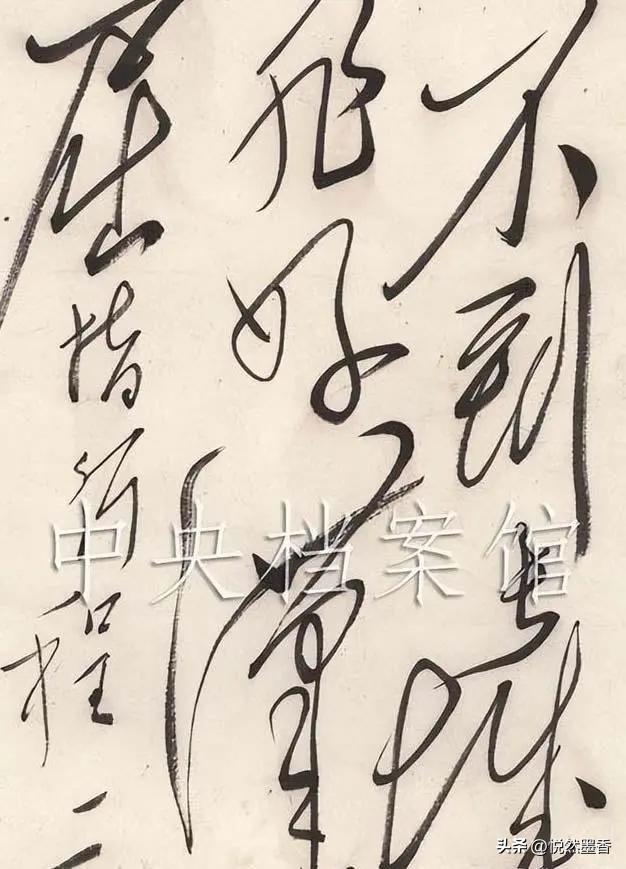 不到長城
非好漢
屈指行程二
中央档案馆
头条 @悦然墨香